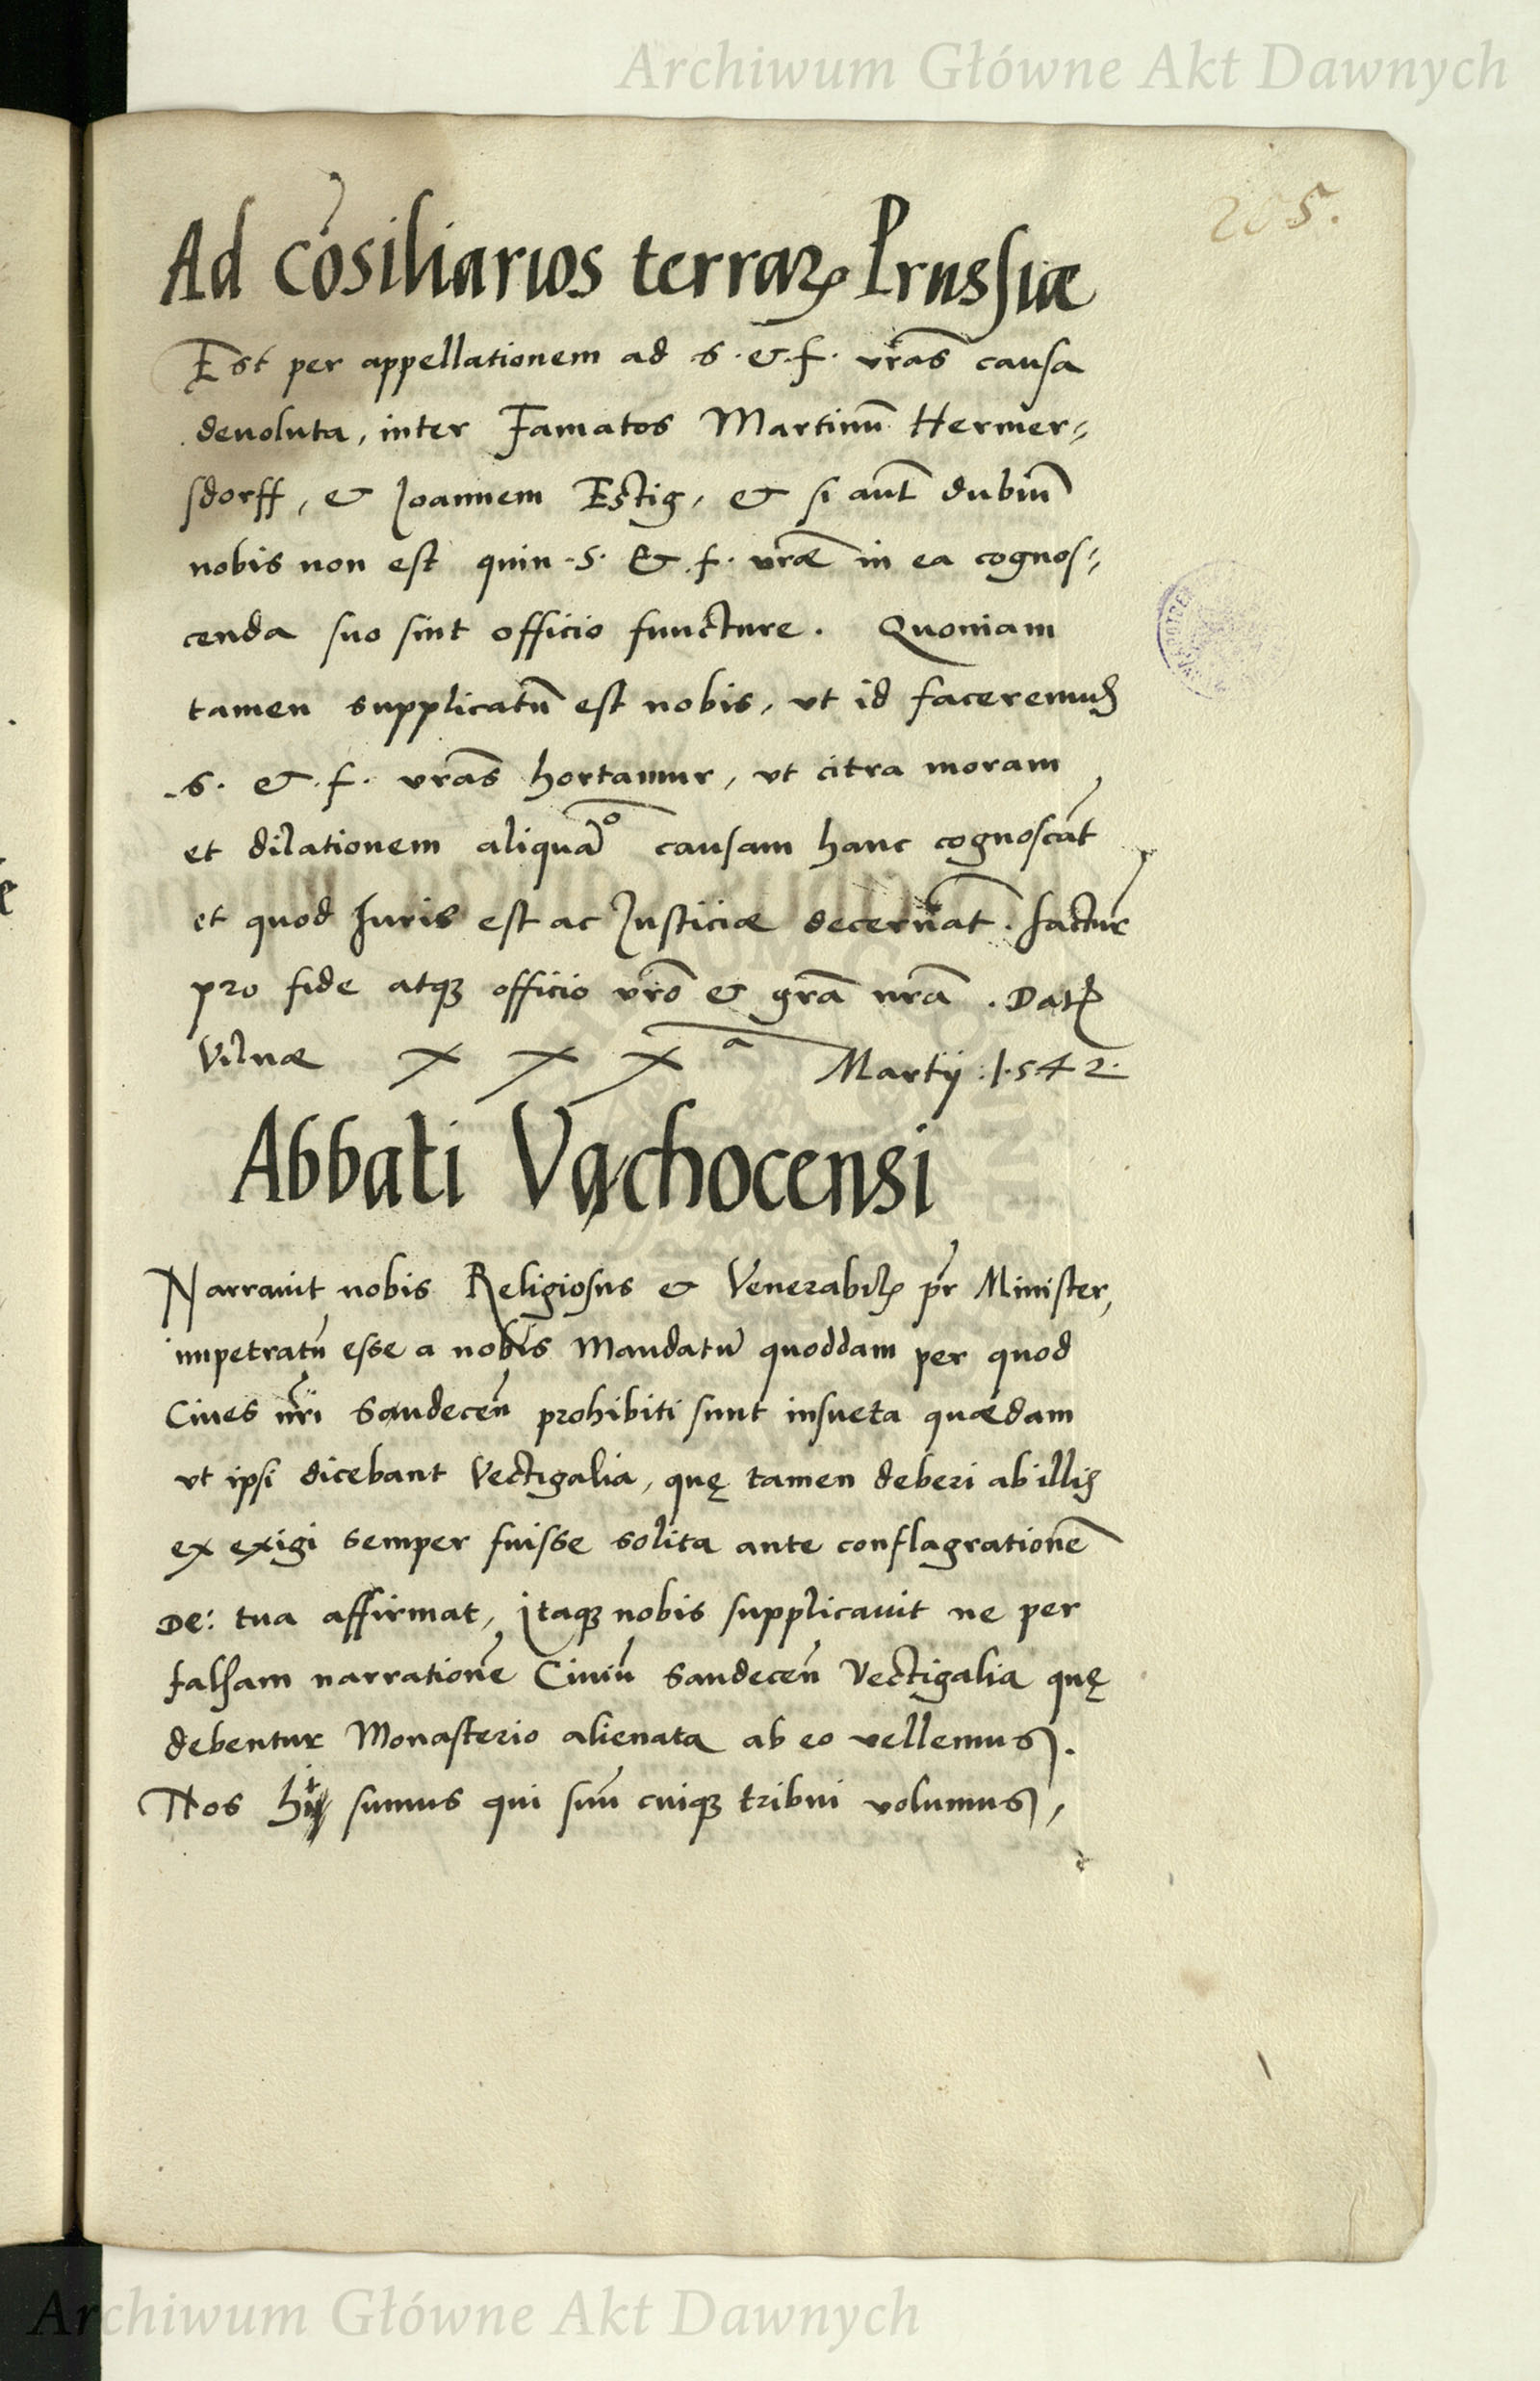 Archiwum Główne Akt Dawnych
205.
Ad cõsiliarios terrarꝝ Prussiæ
Est per appellationem ad S. & f. vr̃as causa
devoluta, inter Famatos Martinũ Hermer⸗
sdorff, & Joannem Estig, & si aut̃ dubiũ
nobis non est quin S. & f. vr̃æ in ea cognos⸗
cenda suo sint officio functure. Quoniam
tamen supplicatũ est nobis, ut id faceremus
S. & f. vr̃as hortamur, ut citra moram
et dilationem aliquã causam hanc cognoscãt
et quod Juris est ac Justiciæ decernãt. factur
pro fide atqꝫ officio vr̃o & gr̃a nr̃a. Datꝭ
Vilnæ X X X a Martij 1.542.
Abbati Vąchocensi
Narravit nobis Religiosus & Venerabilꝭ pr̃ Minister,
impetratũ esse a nobis Mandatũ quoddam per quod
Cives nr̃i Sandeceñ prohibiti sunt insueta quædam
ut ipsi dicebant Vectigalia, quę tamen deberi ab illis
ex exigi semper fuisse solita ante conflagrationẽ
De: tua affirmat, itaqꝫ nobis supplicavit ne per
falsam narrationẽ Civiũ Sandeceñ Vectigalia quę
debentur Monasterio alienata ab eo vellemus.
Nos sumus qui suũ cuiqꝫ tribui volumus,
Archiwum Główne Akt Dawnych